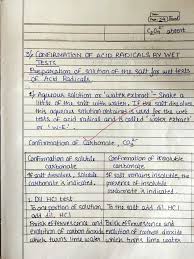 C₂O₄²⁻ absent
3/ CONFIRMATION OF ACID RADICALS BY WET
TESTS
Preparation of solution of the salt for wet tests
of Acid Radicals.
1/ Aqueous solution or 'water extract' - Shake a
little of the salt with water. If the salt dissolves,
this aqueous solution obtained is used for the wet
tests of acid radicals and is called 'water extract'
or 'W.E'.
Confirmation of Carbonate, CO₃²⁻
Confirmation of soluble carbonate
Confirmation of insoluble carbonate
If salt dissolves, soluble carbonate is indicated.
If salt remains insoluble, the presence of insoluble carbonate is indicated.
1. Dil HCl test
To one portion of solution, add dil. HCl
To the salt add dil. HCl
Brisk effervescence and evolution of carbon dioxide which turns lime water
Brisk effervescence and evolution of carbon dioxide which turns lime water